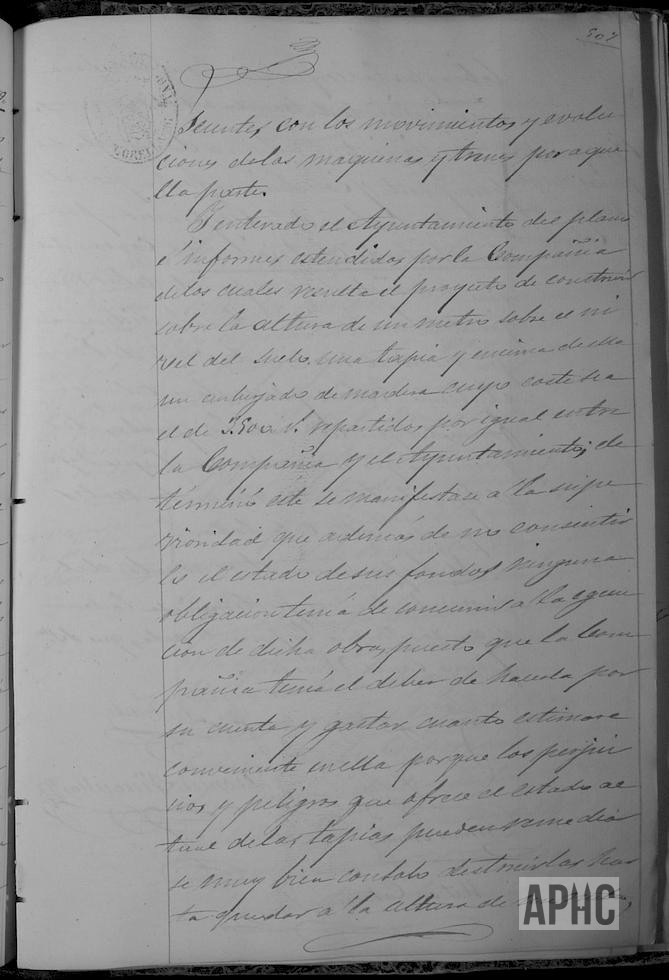 507
con los movimientos y evolu
ciones de las maquinas y trenes por aque
lla parte.
Y enterado el Ayuntamiento del plano
é informes estendidos por la Compañia
de los cuales resulta el proyecto de construir
sobre la altura de un metro sobre el ni
vel del suelo una tapia y encima de ella
un enberjado de madera cuyo coste sea
el de repartidos por igual entre
la Compañia y el Ayuntamiento; de
terminó este se manifestase á la supe
rioridad que además de no consentir
lo el estado de sus fondos ninguna
obligacion tenia de concurrir á la egecu
cion de dicha obra, puesto que la Com
pañia tenia el deber de hacerla por
su cuenta y gastar cuanto estimara
conveniente en ella porque los perjui
cios y peligros que ofrece el estado ac
tual de las tapias pueden remediar
se muy bien con solo destruirlas has
ta quedar á la altura de
APHC